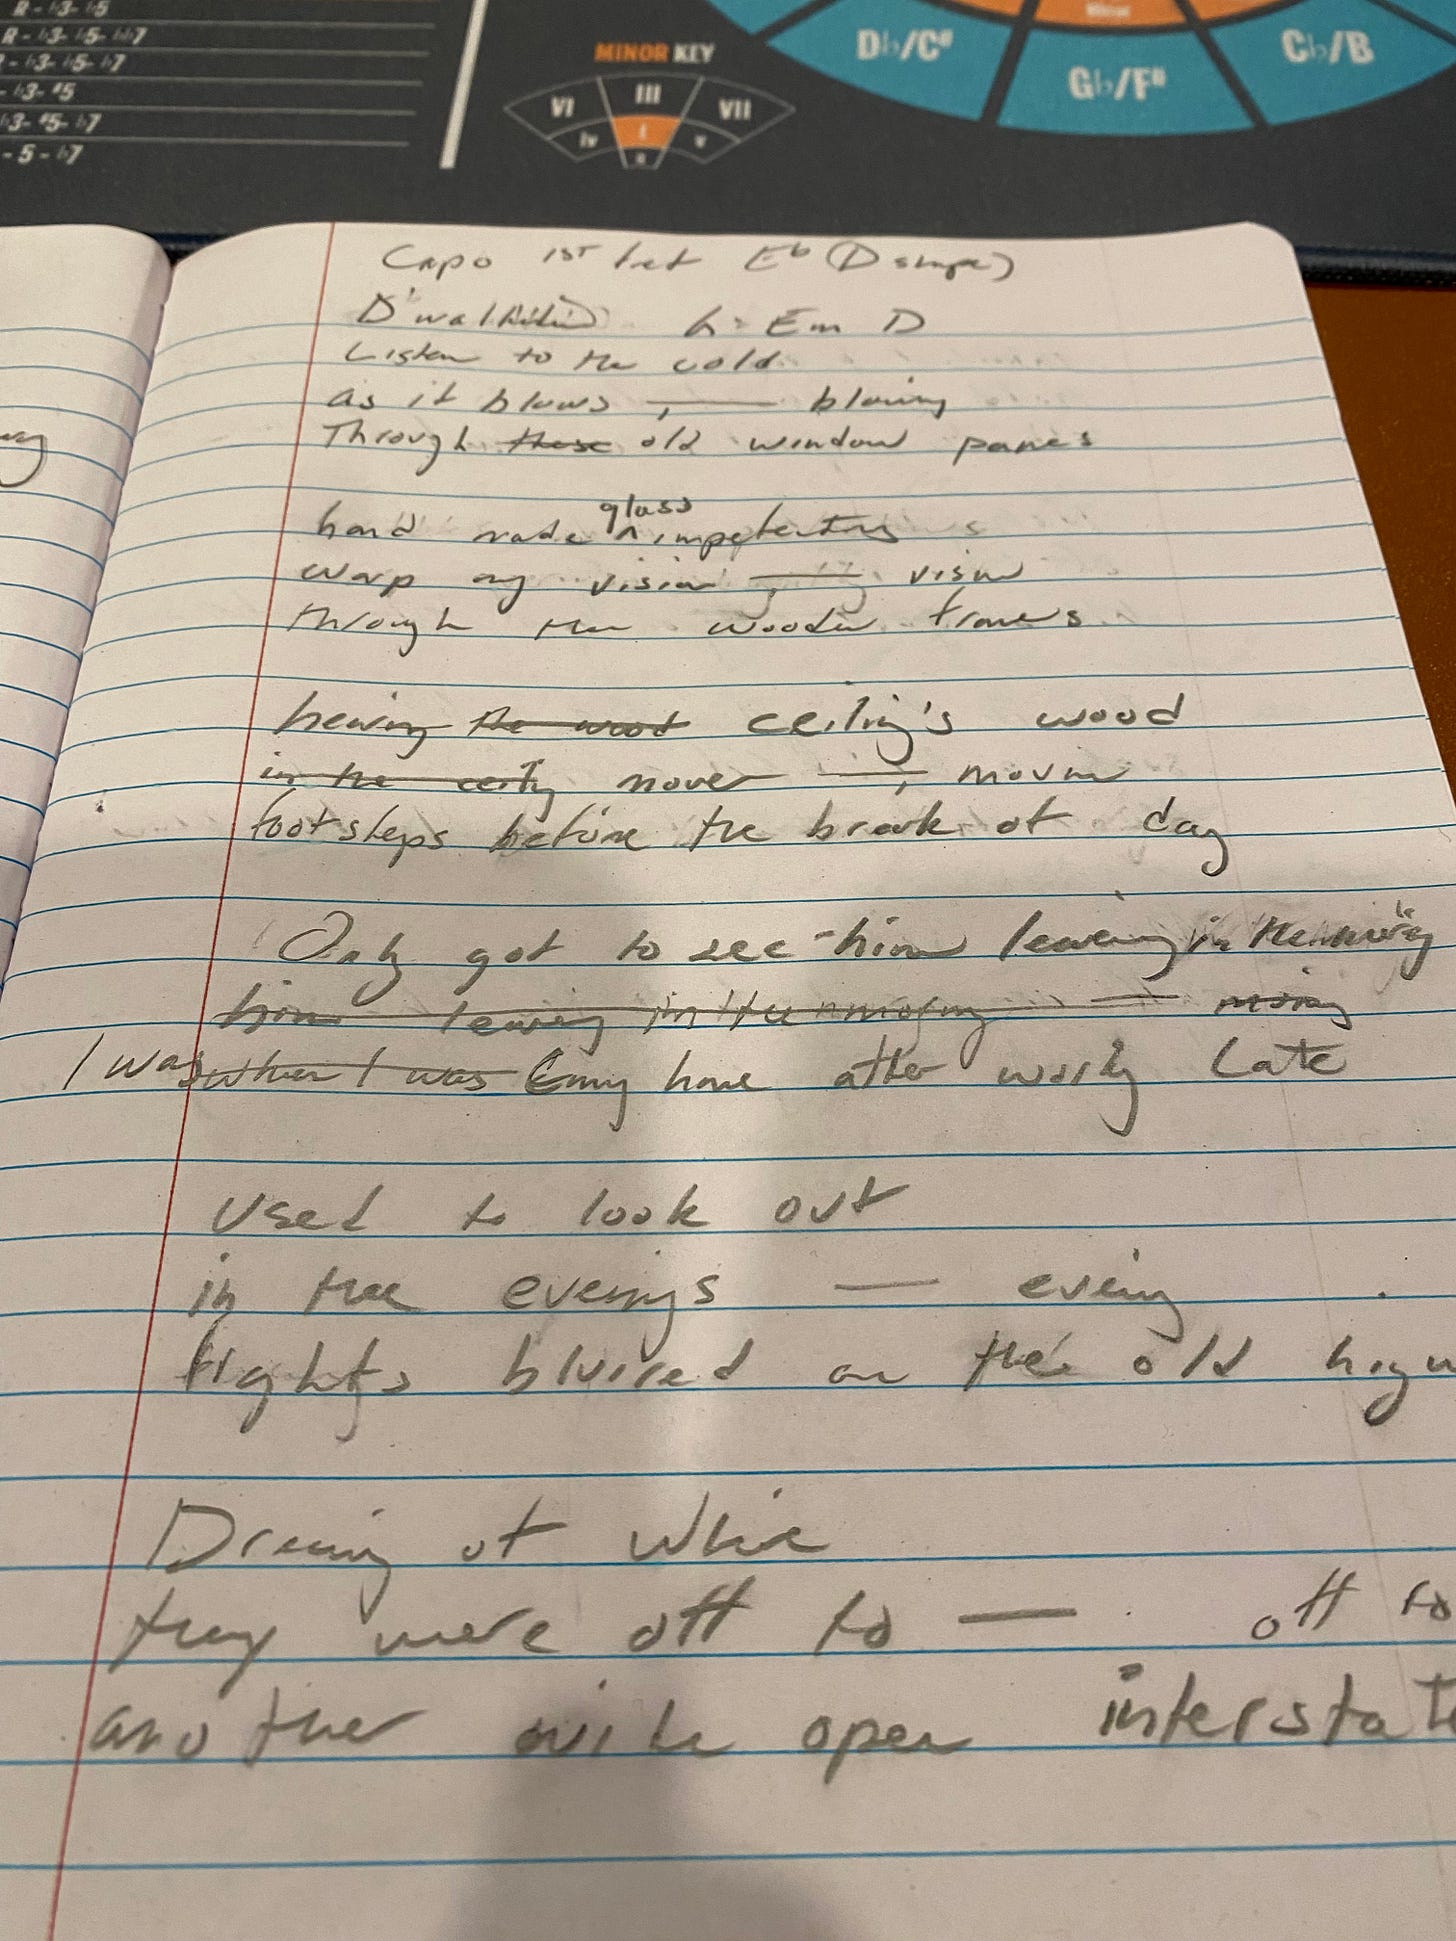 R - ♭3- ♭5
R - ♭3- ♭5- ♭♭7
- ♭3- ♭5- ♭7
- ♭3- #5
♭3- #5- ♭7
- 5 - ♭7
MINOR KEY
VI III VII
iv i v
ii
D♭/C#
G♭/F#
C♭/B
Minor
Capo 1ST fret Eb (D shape)
D Em D
Listen to the cold
as it blows, — blowing
Through these old window panes
hand made glass
warp my vision — vision
through the wooden frames
hearing the wood ceiling's wood
in the ceiling move —, movin
footsteps before the break of day
Only got to see him leaving in the morning
him leaving in the morning — morning
I was when I was coming home after working Late
Used to look out
in the evenings — evening
lights blurred on the old highw
Dreaming of where
they were off to — off to
another wide open interstate